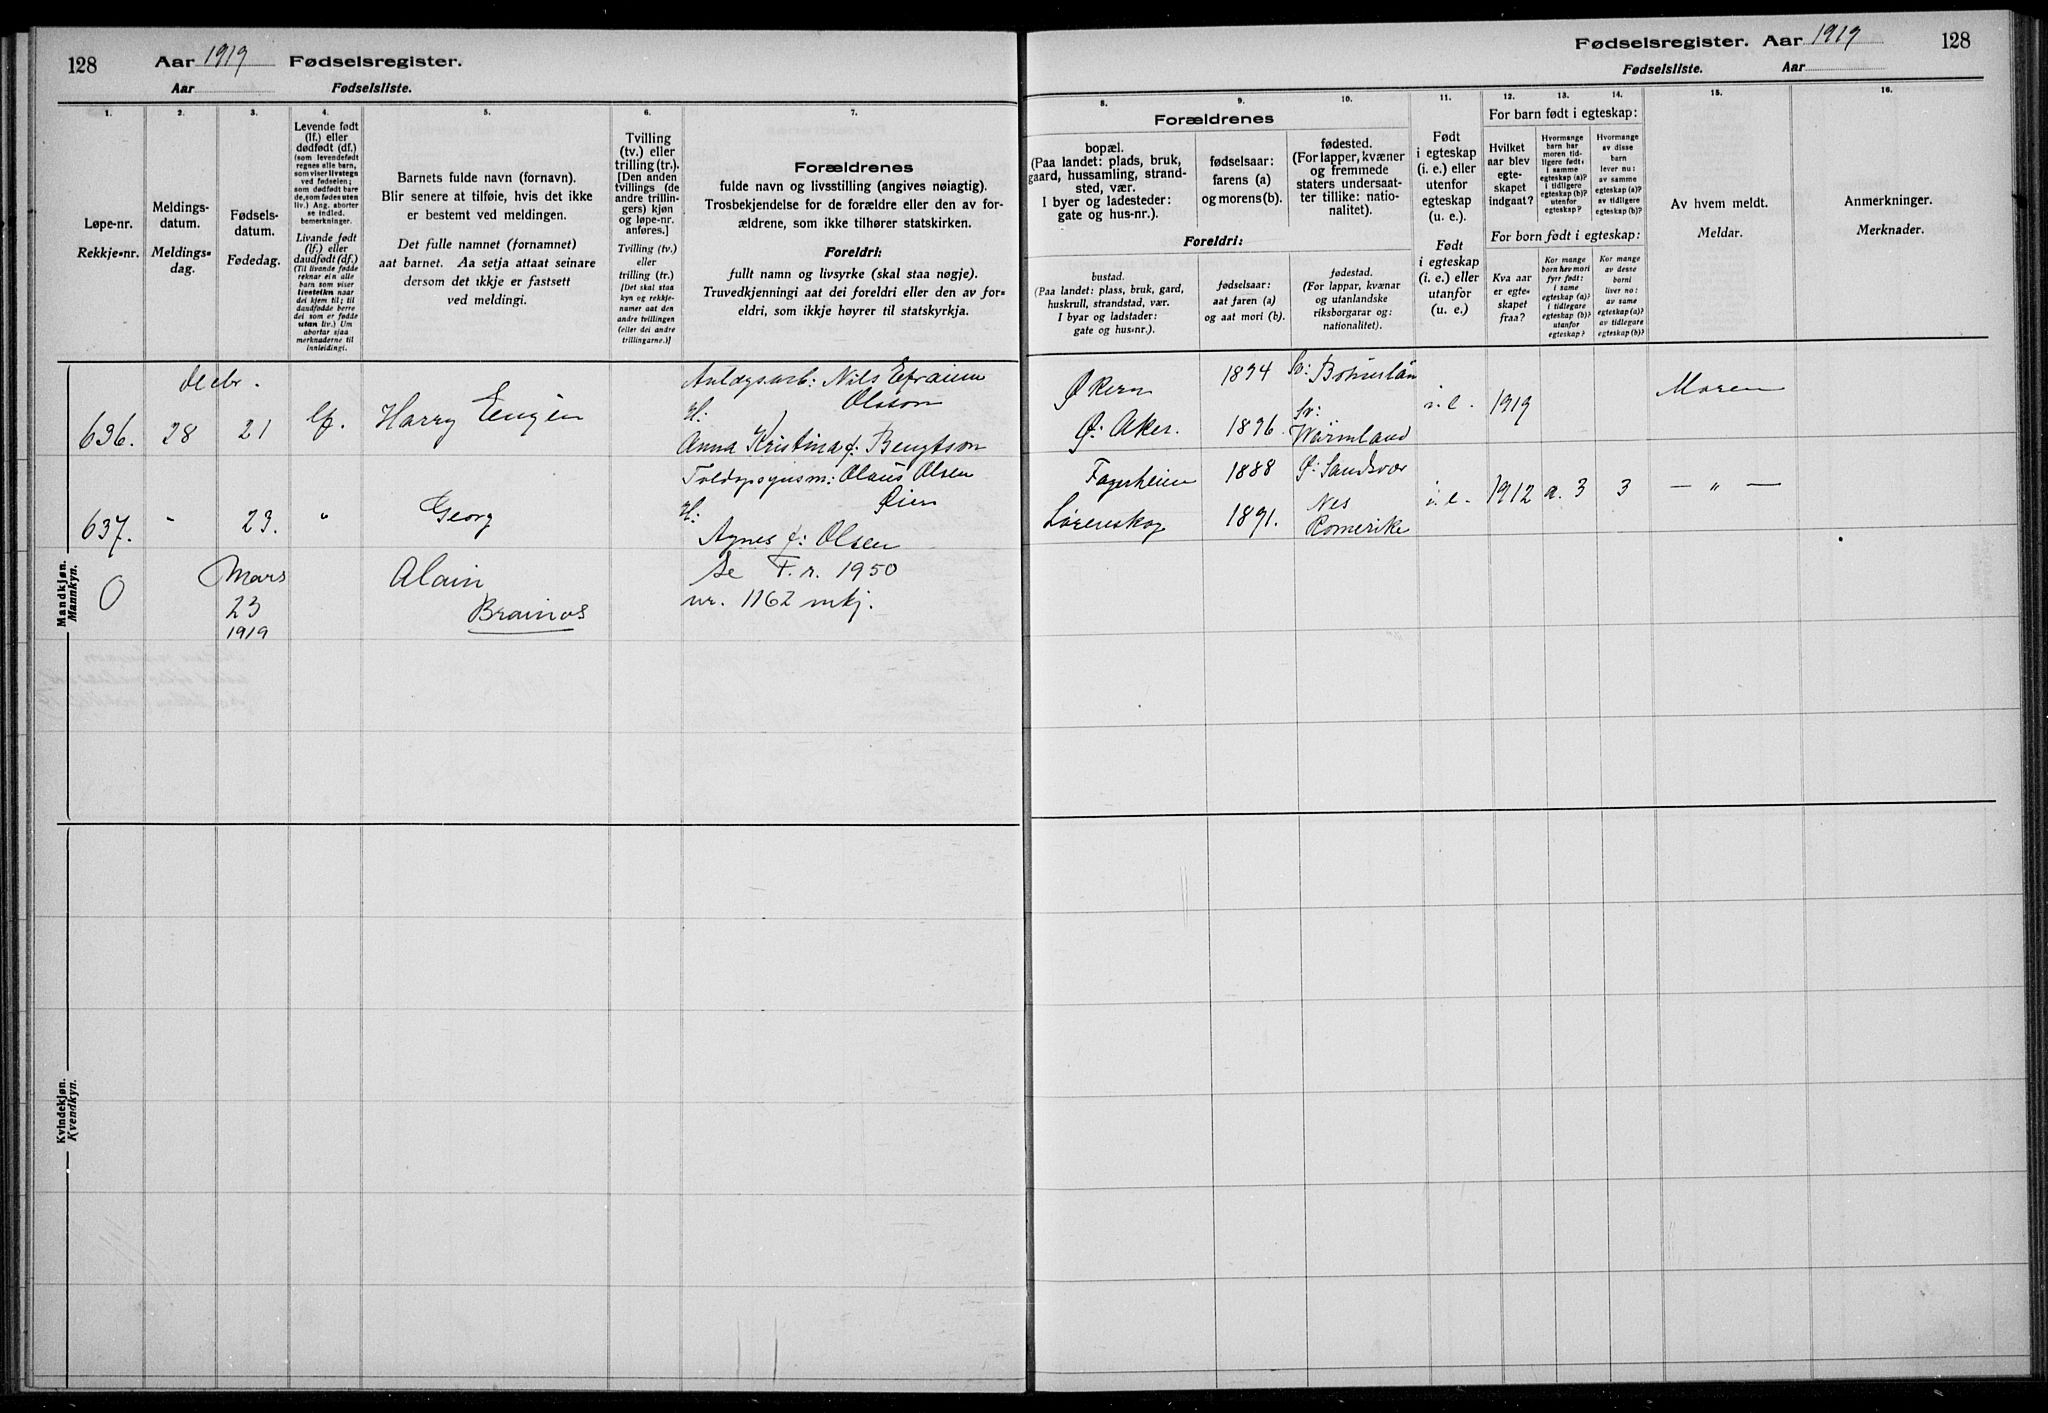 128 Aar 1919 Fødselsregister.
Aar Fødselsliste.
Fødselsregister. Aar 1919 128
Fødselsliste. Aar
1.
Løpe-nr.
Rekkje-nr.
2.
Meldings-
datum.
Meldings-
dag.
3.
Fødsels-
datum.
Fødedag.
4.
Levende født
(lf.) eller
dødfødt (df.)
(som levendefødt
regnes alle barn,
som viser livstegn
ved fødselen;
som dødfødt bare
de, som fødes uten
liv.) Ang. aborter
se indled.
bemerkninger.
Livande født
(lf.) eller
daudfødt (df.)
(Til livande fødde
reknar ein alle
barn som viser
livsteikn naar
dei kjem til; til
daudfødde berre
dei som er fødde
utan liv.) Um
abortar sjaa
merknaderne til
innleidingi.
5.
Barnets fulde navn (fornavn).
Blir senere at tilføie, hvis det ikke
er bestemt ved meldingen.
Det fulle namnet (fornamnet)
aat barnet. Aa setja attaat seinare
dersom det ikkje er fastsett
ved meldingi.
6.
Tvilling
(tv.) eller
trilling (tr.).
[Den anden
tvillings (de
andre trillin-
gers) kjøn
og løpe-nr.
anføres.]
Tvilling (tv.)
eller
trilling (tr.)
[Det skal staa
kyn og rekkje-
numer aat den
andre tvillingen
(eller dei andre
trillingarne.)]
7.
Forældrenes
fulde navn og livsstilling (angives nøiagtig).
Trosbekjendelse for de forældre eller den av for-
ældrene, som ikke tilhører statskirken.
Foreldri:
fullt namn og livsyrke (skal staa nøgje).
Truvedkjenningi aat dei foreldri eller den av for-
eldri, som ikkje høyrer til statskyrkja.
Forældrenes
8.
bopæl.
(Paa landet: plads, bruk,
gaard, hussamling, strand-
sted, vær.
I byer og ladesteder:
gate og hus-nr.).
9.
fødselsaar:
farens (a)
og morens (b).
10.
fødested.
(For lapper, kvæner
og fremmede
staters undersaat-
ter tillike: natio-
nalitet).
Foreldri:
bustad.
(Paa landet: plass, bruk, gard,
huskrull, strandstad, vær.
I byar og ladstader:
gate og hus-nr.).
fødselsaar:
aat faren (a)
og aat mori (b).
fødestad.
(For lappar, kvænar
og utanlandske
riksborgarar og:
nationalitet).
11.
Født
i egteskap
(i. e.) eller
utenfor
egteskap
(u. e.).
Født
i egteskap
(i. e.) eller
utanfor
(u. e.)
For barn født i egteskap:
12.
Hvilket
aar blev
egte-
skapet
indgaat?
13.
Hvormange
barn har
moren tid-
ligere født:
i samme
egteskap (a)?
i tidligere
egteskap (b)?
utenfor
egteskap?
14.
Hvormange
av disse
barn
lever nu:
av samme
egteskap (a)?
av tidligere
egteskap (b)?
For born født i egteskap:
Kva aar
er egte-
skapet
fraa?
Kor mange
born hev mori
fyrr født:
i same
egteskap (a)?
i tidlegare
egteskap (b)?
utanfor
egteskap?
Kor mange
av desse
borni
liver no:
av same
egteskap (a)?
av tidlegare
egteskap (b)?
15.
Av hvem meldt.
Meldar.
16.
Anmerkninger.
Merknader.
Mandkjøn.
Mannkyn.
Decbr.
636. 28 21 lf. Harry Eugén
Anlægsarb: Nils Efraim
Olsson
H.
Anna Kristina f: Bengtson
Økern 1894 Sv: Bohuslän
Ø: Aker. 1896. Sv:
Wärmland
i. e. 1919 Moren
637. " 23. " Georg
Toldopsynsm: Olaus Olsen
Øien
H:
Agnes f: Olsen
Fagerheim 1888 Ø: Sandsvær
Lørenskog 1891. Nes
Romerike
i. e. 1912 a. 3 3 — " —
0 Mars
23
1919
Alain
Brainos
Se F. r. 1950
nr. 1162 mkj.
Kvindekjøn.
Kvendkyn.